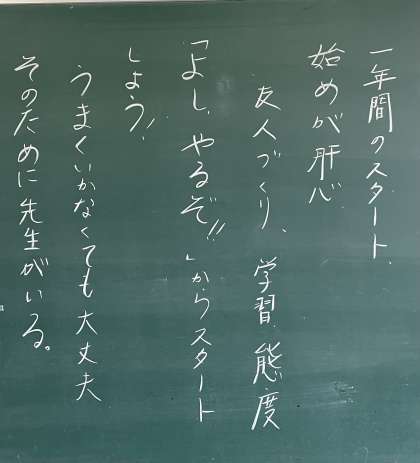 一年間のスタート、
始めが肝心
友人づくり、学習態度
「よし、やるぞ!!」からスタート
しよう!
うまくいかなくても大丈夫
そのために先生がいる。